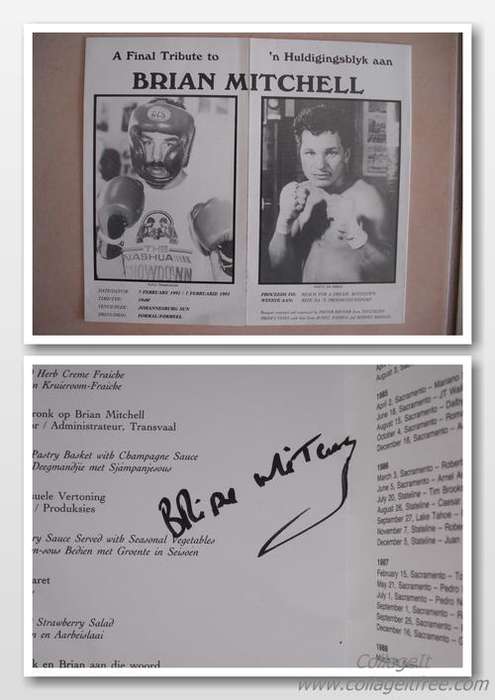 A Final Tribute to 'n Huldigingsblyk aan
BRIAN MITCHELL
THE
NASHUA
SHOWDOWN
DATE/DATUM: 7 FEBRUARY 1992 / 7 FEBRUARIE 1992
TIME/TYD: 19:00
VENUE/PLEK: JOHANNESBURG SUN
DRESS/DRAG: FORMAL/FORMEEL
PROCEEDS TO:
WENSDE AAN:
Herb Creme Fraiche
n Kruieroom-Fraiche
ronk op Brian Mitchell
or / Administrateur, Transvaal
Pastry Basket with Champagne Sauce
Deegmandjie met Sjampanjesous
suele Vertoning
/ Produksies
ry Sauce Served with Seasonal Vegetables
en-sous Bedien met Groente in Seisoen
aret
Strawberry Salad
n en Aarbeislaai
k en Brian aan die woord
Brian Mitchell
1985
April 2, Sacramento – Mariano
June 18, Sacramento – JT Wa
August 15, Sacramento –
October 4, Sacramento –
December 18, Sacramento –
1986
March 3, Sacramento – Robert
June 5, Sacramento – Arnel
July 20, Stateline – Tim Brook
August 26, Stateline – Caesar
September 27, Lake Tahoe –
November 7, Stateline – Robe
December 5, Stateline – Juan
1987
February 15, Sacramento –
May 21, Sacramento – Pedro
July 1, Sacramento – Pedro
September 1, Sacramento –
September 25, Sacramento –
December 16, Sacramento –
1988
CollageIt
www.collageitfree.com